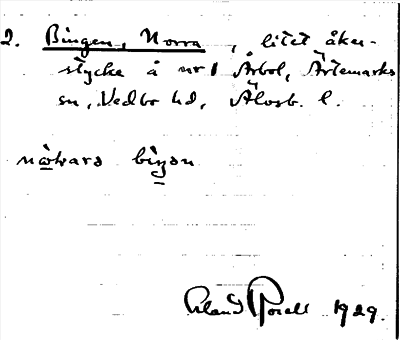 2. Bingen, Norra, litet åker-
stycke å nr 1 Årbol, Ärtemarks
sn, Vedbo hd, Älvsb. l.
nårtvara biŋən
Erland Rosell 1929.